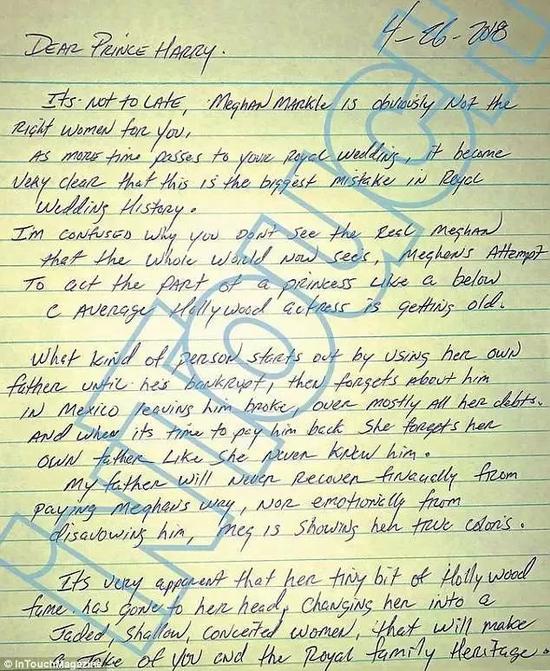 4-26-2018
DEAR PRINCE HARRY.
Its not to LATE, Meghan Markle is obviously Not the
Right women for you,
As more time passes to your Royal Wedding, it became
Very clear that this is the biggest mistake in Royal
Wedding History.
Im confused why you dont see the real Meghan
that the whole world now sees, Meghans Attempt
To act the part of a princess like a below
C average Hollywood actress is getting old.
What kind of person starts out by using her own
father until he's bankrupt, then forgets about him
in Mexico leaving him broke, over mostly all her debts.
And when its time to pay him back She forgets her
own father like She never knew him.
My father will never recover finacially from
paying Meghans way, nor emotionally from
disavowing him, Meg is showing her true colors.
Its very apparent that her tiny bit of Hollywood
fame has gone to her head, Changing her into a
Jaded, Shallow, conceited women, that will make
of you and the Royal family Heritage.
INTOUCH
© InTouchMagazine